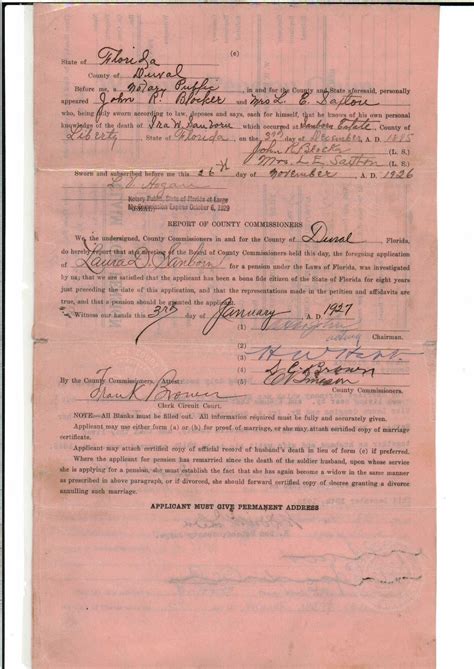 (c)
State of Florida
County of Duval
Before me, a Notary Public, in and for the County and State aforesaid, personally
appeared John R. Blocker and Mrs L. E. Saxton
who, being duly sworn according to law, deposes and says, each for himself, that he knows of his own personal
knowledge of the death of Ira W. Sanborn which occurred at Sanborn Estate County of
Liberty, State of Florida on the day of December A. D. 1885
John R Blocker
Mrs. L. E. Saxton (L. S.)
Sworn and subscribed before me this 26th day of November A. D. 1926
L. V. Hogan
Notary Public, State of Florida at Large
My Commission Expires October 6, 1929
REPORT OF COUNTY COMMISSIONERS
We, the undersigned, County Commissioners in and for the County of Duval, Florida,
do hereby report that at a meeting of the Board of County Commissioners held this day, the foregoing application
of Laura D. Sanborn for a pension under the Laws of Florida, was investigated
by us; that we are satisfied that the applicant has been a bona fide citizen of the State of Florida for eight years
just preceding the date of application, and that the representations made in the petition and affidavits are
true, and that a pension should be granted the applicant.
Witness our hands this 3rd day of January A. D. 1927
(1)
Chairman.
(2)
(3)
(4) Brown
(5)
By the County Commissioners, Attest: County Commissioners.
Frank Brown
Clerk Circuit Court.
NOTE—All Blanks must be filled out. All information required must be fully and accurately given.
Applicant may use either form (a) or (b) for proof of marriage, or she may attach certified copy of marriage
certificate.
Applicant may attach certified copy of official record of husband's death in lieu of form (c) if preferred.
Where the applicant for pension has remarried since the death of the soldier husband, upon whose service
she is applying for a pension, she must establish the fact that she has again become a widow in the same manner
as prescribed in above paragraph, or if divorced, she should forward certified copy of decree granting a divorce
annulling such marriage.
APPLICANT MUST GIVE PERMANENT ADDRESS